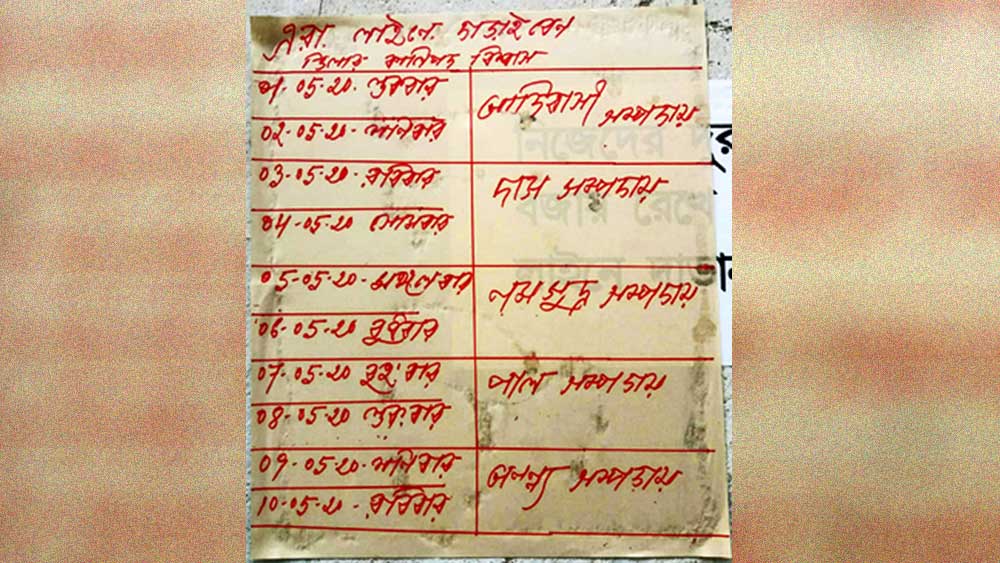 এরা লাইনে দাড়াইবেন
ডিলার কালিপদ বিশ্বাস
01-05-20 শুক্রবার
আদিবাসী সম্প্রদায়
02-05-20 - শনিবার
03-05-20 - রবিবার
দাস সম্প্রদায়
04-05-20 সোমবার
05-05-20 - মঙ্গলবার
নমঃশুদ্র সম্প্রদায়
06-05-20 বুধবার
07-05-20 বৃহঃ বার
পাল সম্প্রদায়
08-05-20 শুক্রবার
09-05-20 - শনিবার
অনন্য সম্প্রদায়
10-05-20 - রবিবার
নিজেদের
বজায় রেখে
লাইনে